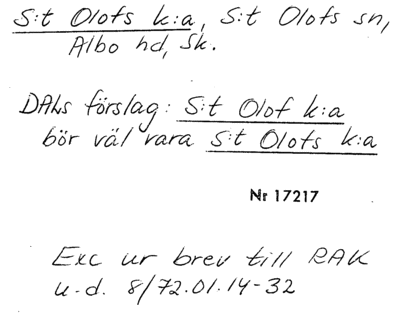 S:t Olofs k:a, S:t Olofs sn,
Albo hd, Sk.
DALs förslag: S:t Olof k:a
bör väl vara S:t Olofs k:a
Nr 17217
Exc ur brev till RAK
u.d. 8/72.01.14-32